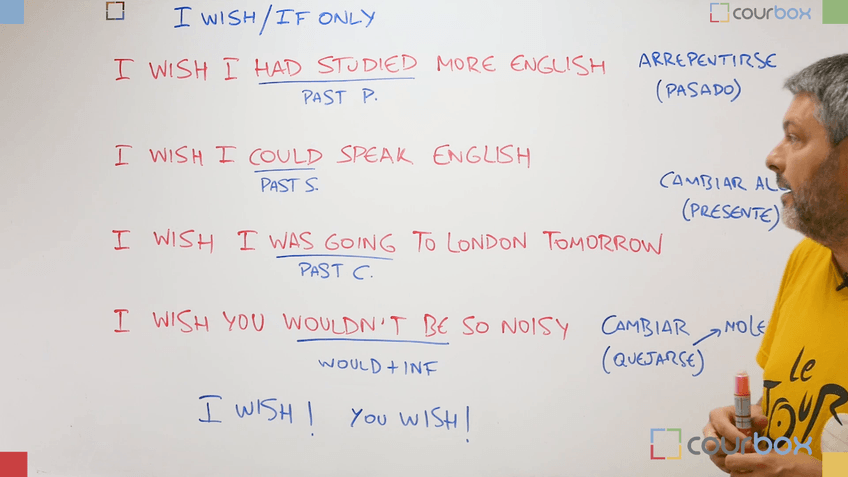 I WISH/IF ONLY
courbox
I WISH I HAD STUDIED MORE ENGLISH
ARREPENTIRSE
PAST P.
(PASADO)
I WISH I COULD SPEAK ENGLISH
PAST S.
CAMBIAR
(PRESENTE)
I WISH I WAS GOING TO LONDON TOMORROW
PAST C.
I WISH YOU WOULDN'T BE SO NOISY
CAMBIAR
(QUEJARSE)
WOULD + INF
I WISH! YOU WISH!
Le
TOUR
courbox